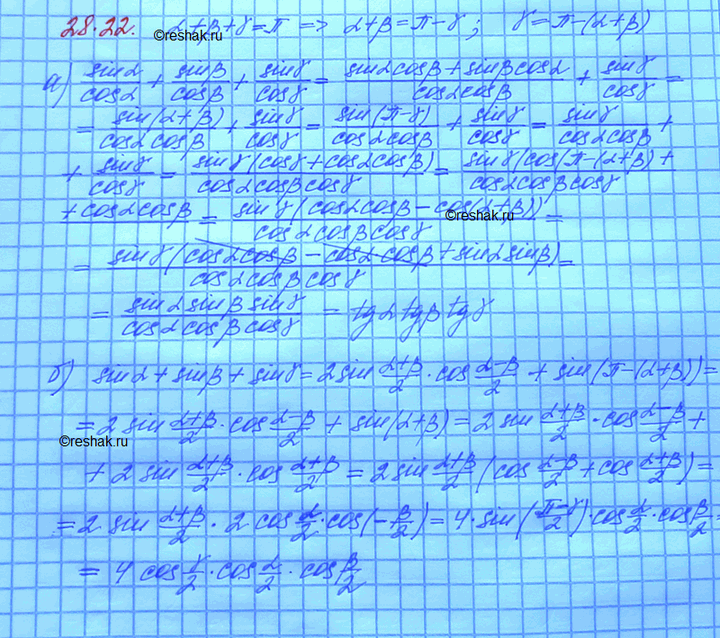 28.22. α+β+γ=π => α+β=π-γ; γ=π-(α+β)
©reshak.ru
а) sinα/cosα + sinβ/cosβ + sinγ/cosγ = (sinαcosβ + sinβcosα)/(cosαcosβ) + sinγ/cosγ =
= sin(α+β)/(cosαcosβ) + sinγ/cosγ = sin(π-γ)/(cosαcosβ) + sinγ/cosγ = sinγ/(cosαcosβ) +
+ sinγ/cosγ = sinγ(cosγ + cosαcosβ)/(cosαcosβcosγ) = sinγ(cos(π-(α+β)+/(cosαcosβcosγ)
+ cosαcosβ = sinγ(cosαcosβ - cos(α+β))/(cosαcosβcosγ) =
©reshak.ru
= sinγ(cosαcosβ - cosαcosβ + sinαsinβ)/(cosαcosβcosγ) =
= sinαsinβsinγ/(cosαcosβcosγ) = tgαtgβtgγ
б) sinα + sinβ + sinγ = 2sin (α+β)/2 · cos (α-β)/2 + sin(π-(α+β)) =
= 2sin (α+β)/2 · cos (α-β)/2 + sin(α+β) = 2sin (α+β)/2 · cos (α-β)/2 +
©reshak.ru
+ 2sin (α+β)/2 · cos (α+β)/2 = 2sin (α+β)/2 (cos (α-β)/2 + cos (α+β)/2) =
= 2sin (α+β)/2 · 2cos α/2 · cos(-β/2) = 4·sin((π-γ)/2)·cos α/2 · cos β/2 =
= 4cos γ/2 · cos α/2 · cos β/2